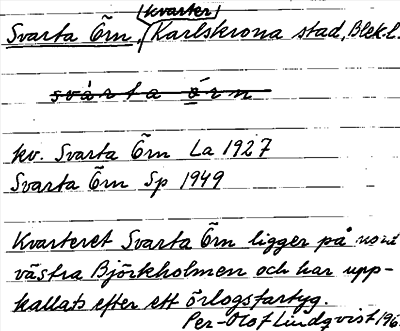 Svarta Örn, kvarter, Karlskrona stad, Blek.l.
svárta ö́rn
kv. Svarta Örn La 1927
Svarta Örn Sp 1949
Kvarteret Svarta Örn ligger på
västra Björkholmen och har upp-
kallats efter ett örlogsfartyg.
Per-Olof Lindqvist 196